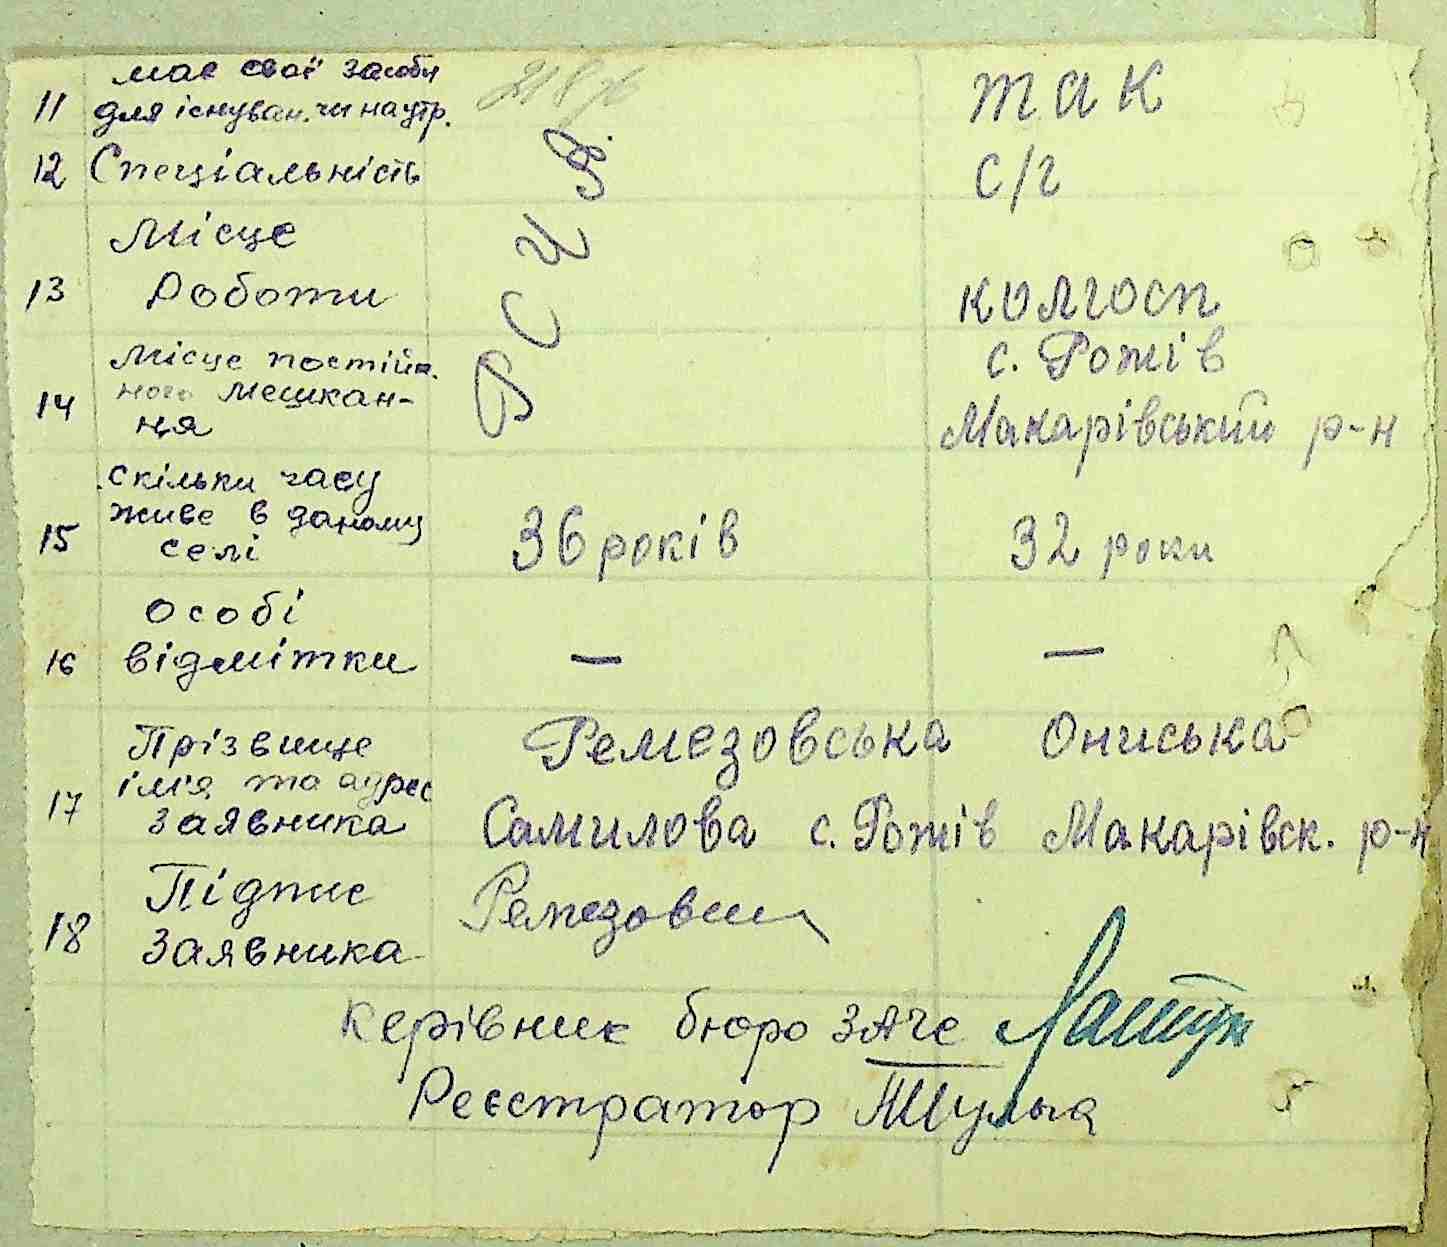 11 має свої засоби
для існуван. чи на утр.
так
12 Спеціальність
с/г
13 Місце
роботи
колгосп
14 Місце постійн.
ного мешкан-
ня
с. Рожів
Макарівський р-н
15 скільки часу
живе в даному
селі
36 років
32 роки
16 особі
відмітки
—
—
17 Прізвище
ім'я та адрес
заявника
Ремезовська Ониська
Самилова с. Рожів Макарівск. р-н
18 Підпис
заявника
керівник бюро ЗАГС
Реєстратор